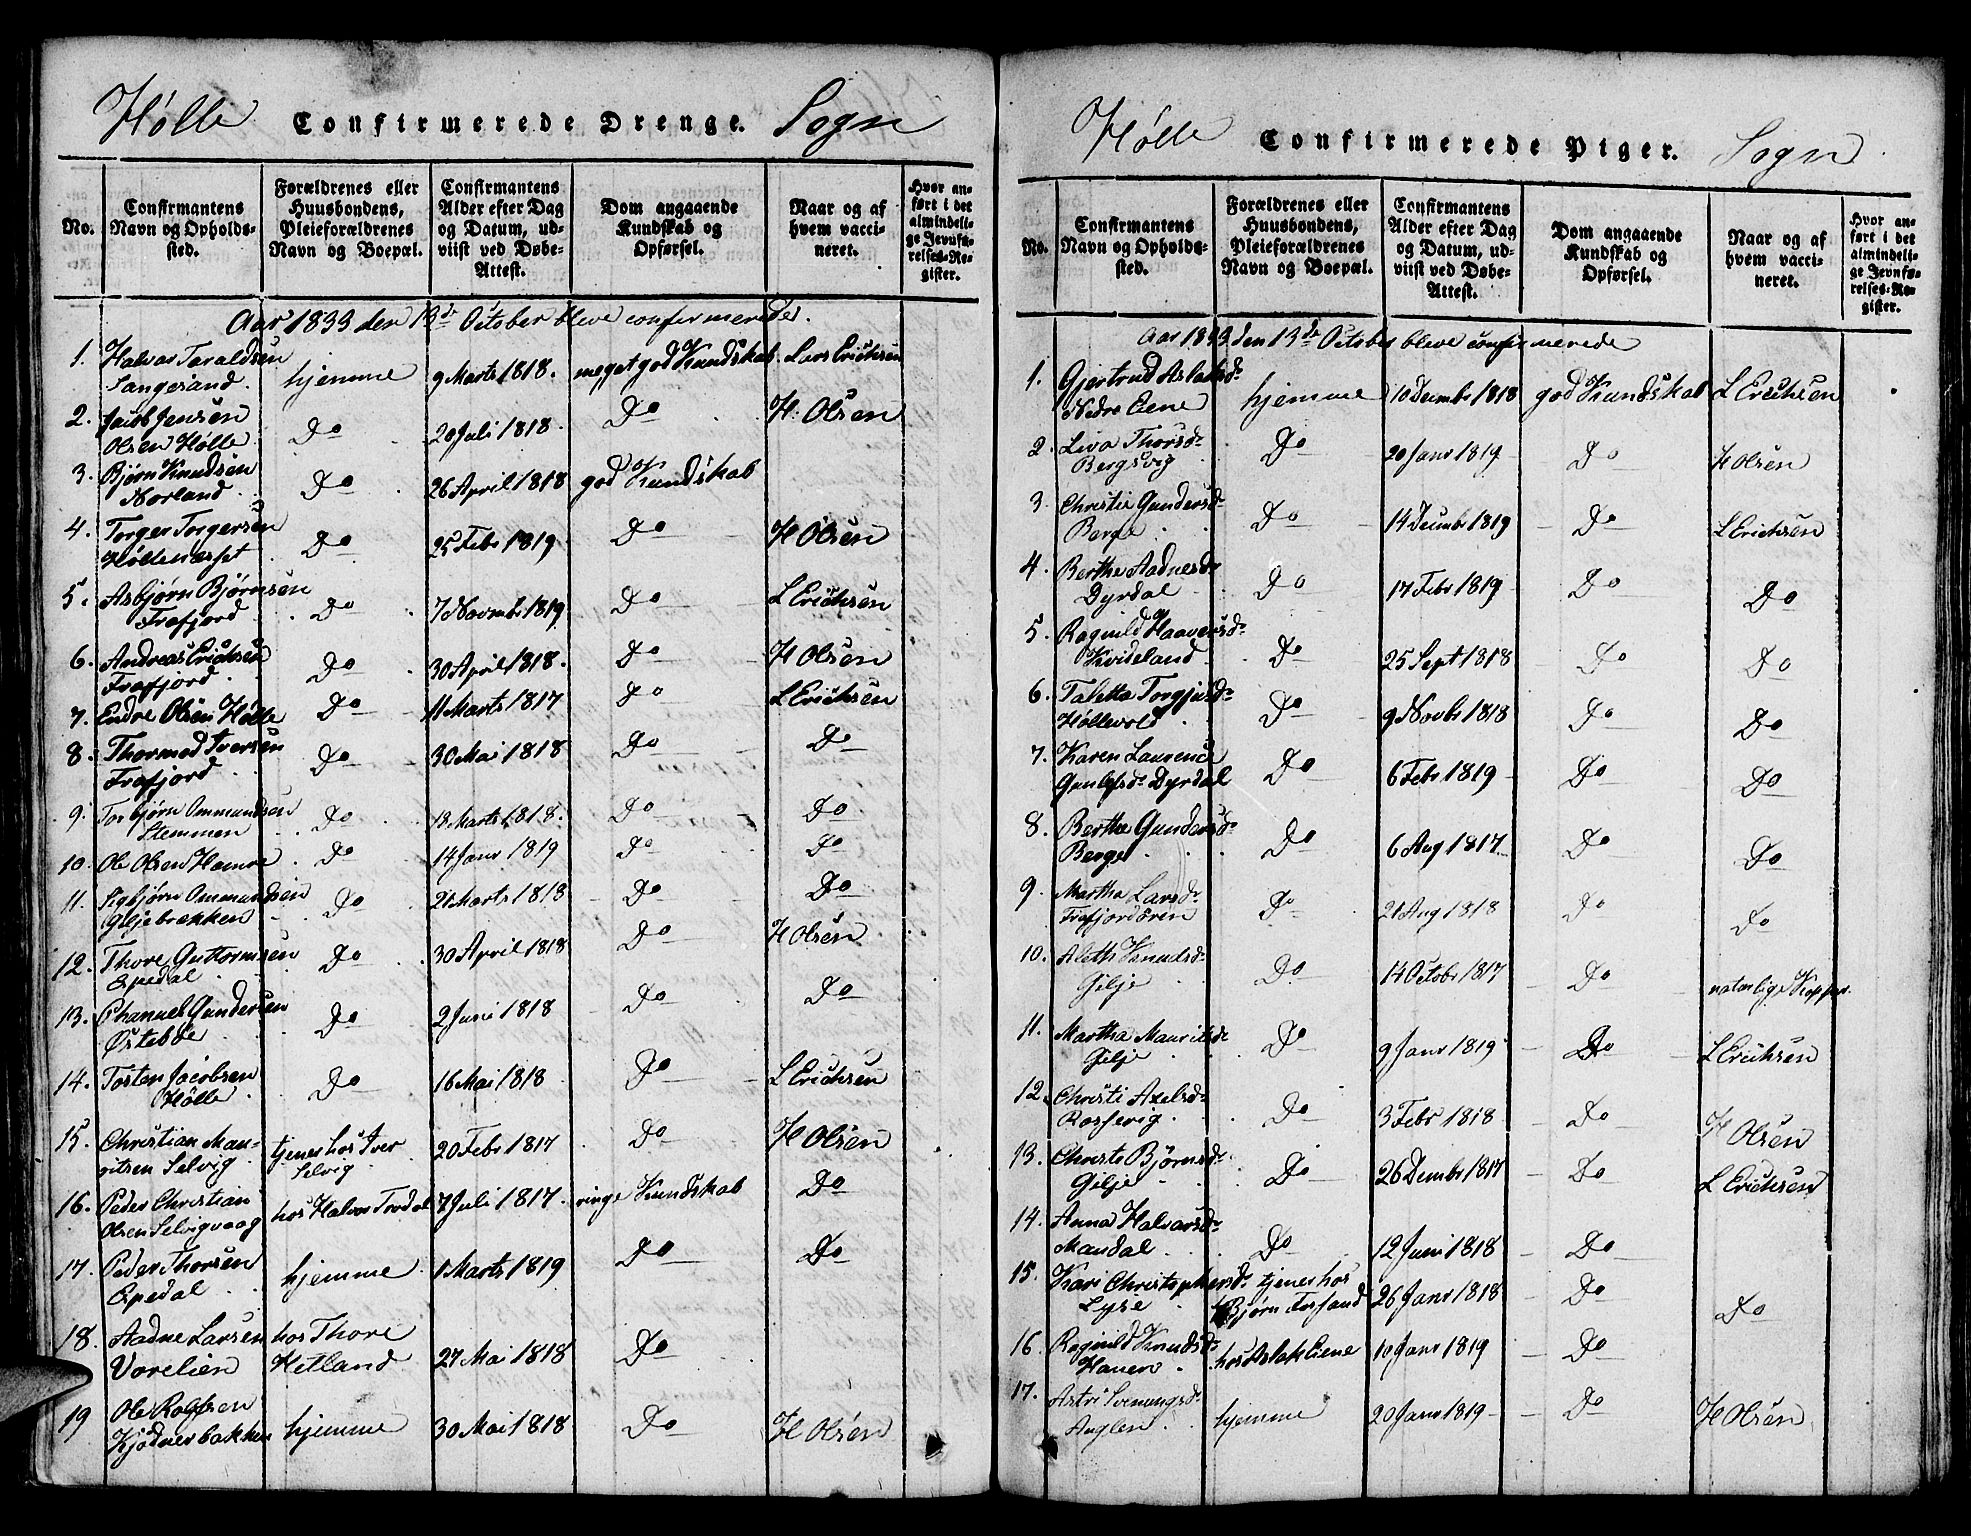 Hølle Confirmerede Drenge. Sogn
No.
Confirmantens Navn og Opholdssted.
Forældrenes eller Huusbondens, Pleieforældrenes Navn og Boepæl.
Confirmantens Alder efter Dag og Datum, udviist ved Døbe-Attest.
Dom angaaende Kundskab og Opførsel.
Naar og af hvem vaccineret.
Hvor anført i det almindelige Jevnførelses-Register.
Aar 1833 den 13de October bleve confirmerede.
1. Halvor Taraldsen Langesand. hjemme 9 Marts 1818. meget god Kundskab. Lars Erichsen
2. Jacob Jensen Olsen Hølle Do 20 Juli 1818. Do H. Olsen
3. Bjørn Knudsen Norland Do 26 April 1818 god Kundskab
4. Torger Torgersen Høllenæset Do 25 Febr 1819 Do H Olsen
5. Asbjørn Bjørnsen Frafjord Do 7 Novmbr 1819 Do L Erichsen
6. Andreas Erichsen Frafjord Do 30 April 1818. Do H Olsen
7. Endre Olsen Hølle Do 11 Marts 1817 Do L Erichsen
8. Thormod Iversen Frafjord Do 30 Mai 1818 Do Do
9. Torbjørn Ommundsen Stemmen Do 18 Marts 1818. Do Do
10. Ole Olsen Hamre Do 14 Janr 1819 Do Do
11. Sigbjørn Ommundsen Giljebrækken Do 21 Marts 1818 Do Do
12. Thore Guttormsen Espedal Do 30 April 1818 Do H Olsen
13. Phanuel Gundersen Østebøe Do 2 Juni 1818 Do Do
14. Tosten Jacobsen Hølle Do 16 Mai 1818 Do L Erichsen
15. Christian Mauritsen Selvig tjener hos Iver Selvig 20 Febr 1817 Do H Olsen
16. Peder Christian Olsen Selvigvaag hos Halvor 7 Juli 1817. ringe Kundskab Do
17. Peder Thorsen Espedal hjemme 1 Marts 1819 Do Do
18. Aadne Larsen Vorelien hos Thore Hetland 27 Mai 1818 Do
19 Ole hjemme 30 Mai 1818 Do H Olsen
Hølle Confirmerede Piger. Sogn
No.
Confirmantens Navn og Opholdssted.
Forældrenes eller Huusbondens, Pleieforældrenes Navn og Boepæl.
Confirmantens Alder efter Dag og Datum, udviist ved Døbe-Attest.
Dom angaaende Kundskab og Opførsel.
Naar og af hvem vaccineret.
Hvor anført i det almindelige Jevnførelses-Register.
Aar 1833 den 13de October bleve confirmerede
1. Gjertrud Aslaksdr Nedre Eiene hjemme 10 Decmbr 1818 god Kundskab L Erichsen
2. Liva Thorsdr Bergsvig Do 20 Janr 1819 Do H Olsen
3. Christie Gundersdr Berge Do 14 Decmbr 1819 Do L Erichsen
4. Berthe Aadnesdr Dyrdal Do 17 Febr 1819 Do Do
5. Ragnild Haaversdr Kvideland Do 25 Sept 1818 Do Do
6. Taletta Torgjusdr Høllevold Do 9 Novbr 1818 Do Do
7. Karen Laurence Gunlefsdr Dyrdal Do 6 Febr 1819 Do Do
8. Berthe Gundersdr Berge Do 6 Aug 1817 Do Do
9. Martha Larsdr Frafjordøren Do 21 Aug 1818 Do Do
10. Aleth Knudsdr Gilje Do 14 Octobr 1817 Do naturlige Kopper
11. Martha Mauritsdr Gilje Do 9 Janr 1819 Do L Erichsen
12. Christi Axelsdr Rossevig Do 3 Febr 1818 Do H Olsen
13. Christi Bjørnsdr Gilje Do 26 Decmbr 1817 Do L Erichsen
14. Anna Halvorsdr Mandal Do 12 Juni 1818 Do
15. Kari Christophersdr Lyse tjener hos Bjørn Forsand 26 Janr 1818 Do Do
16. Ragnild Knudsdr Hauen hos Aslak Eiene 10 Janr 1819 Do
17. Astri Svenungsdr Auglen hjemme 20 Janr 1819 Do H Olsen